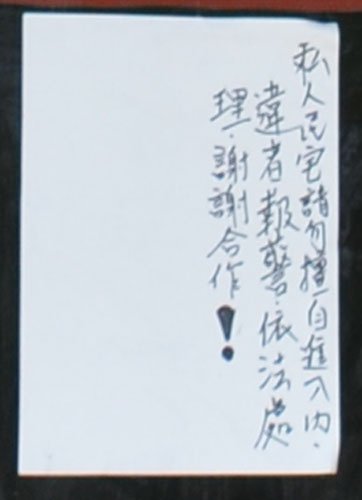 私人民宅請勿擅自進入內.
違者報警.依法處
理.謝謝合作!